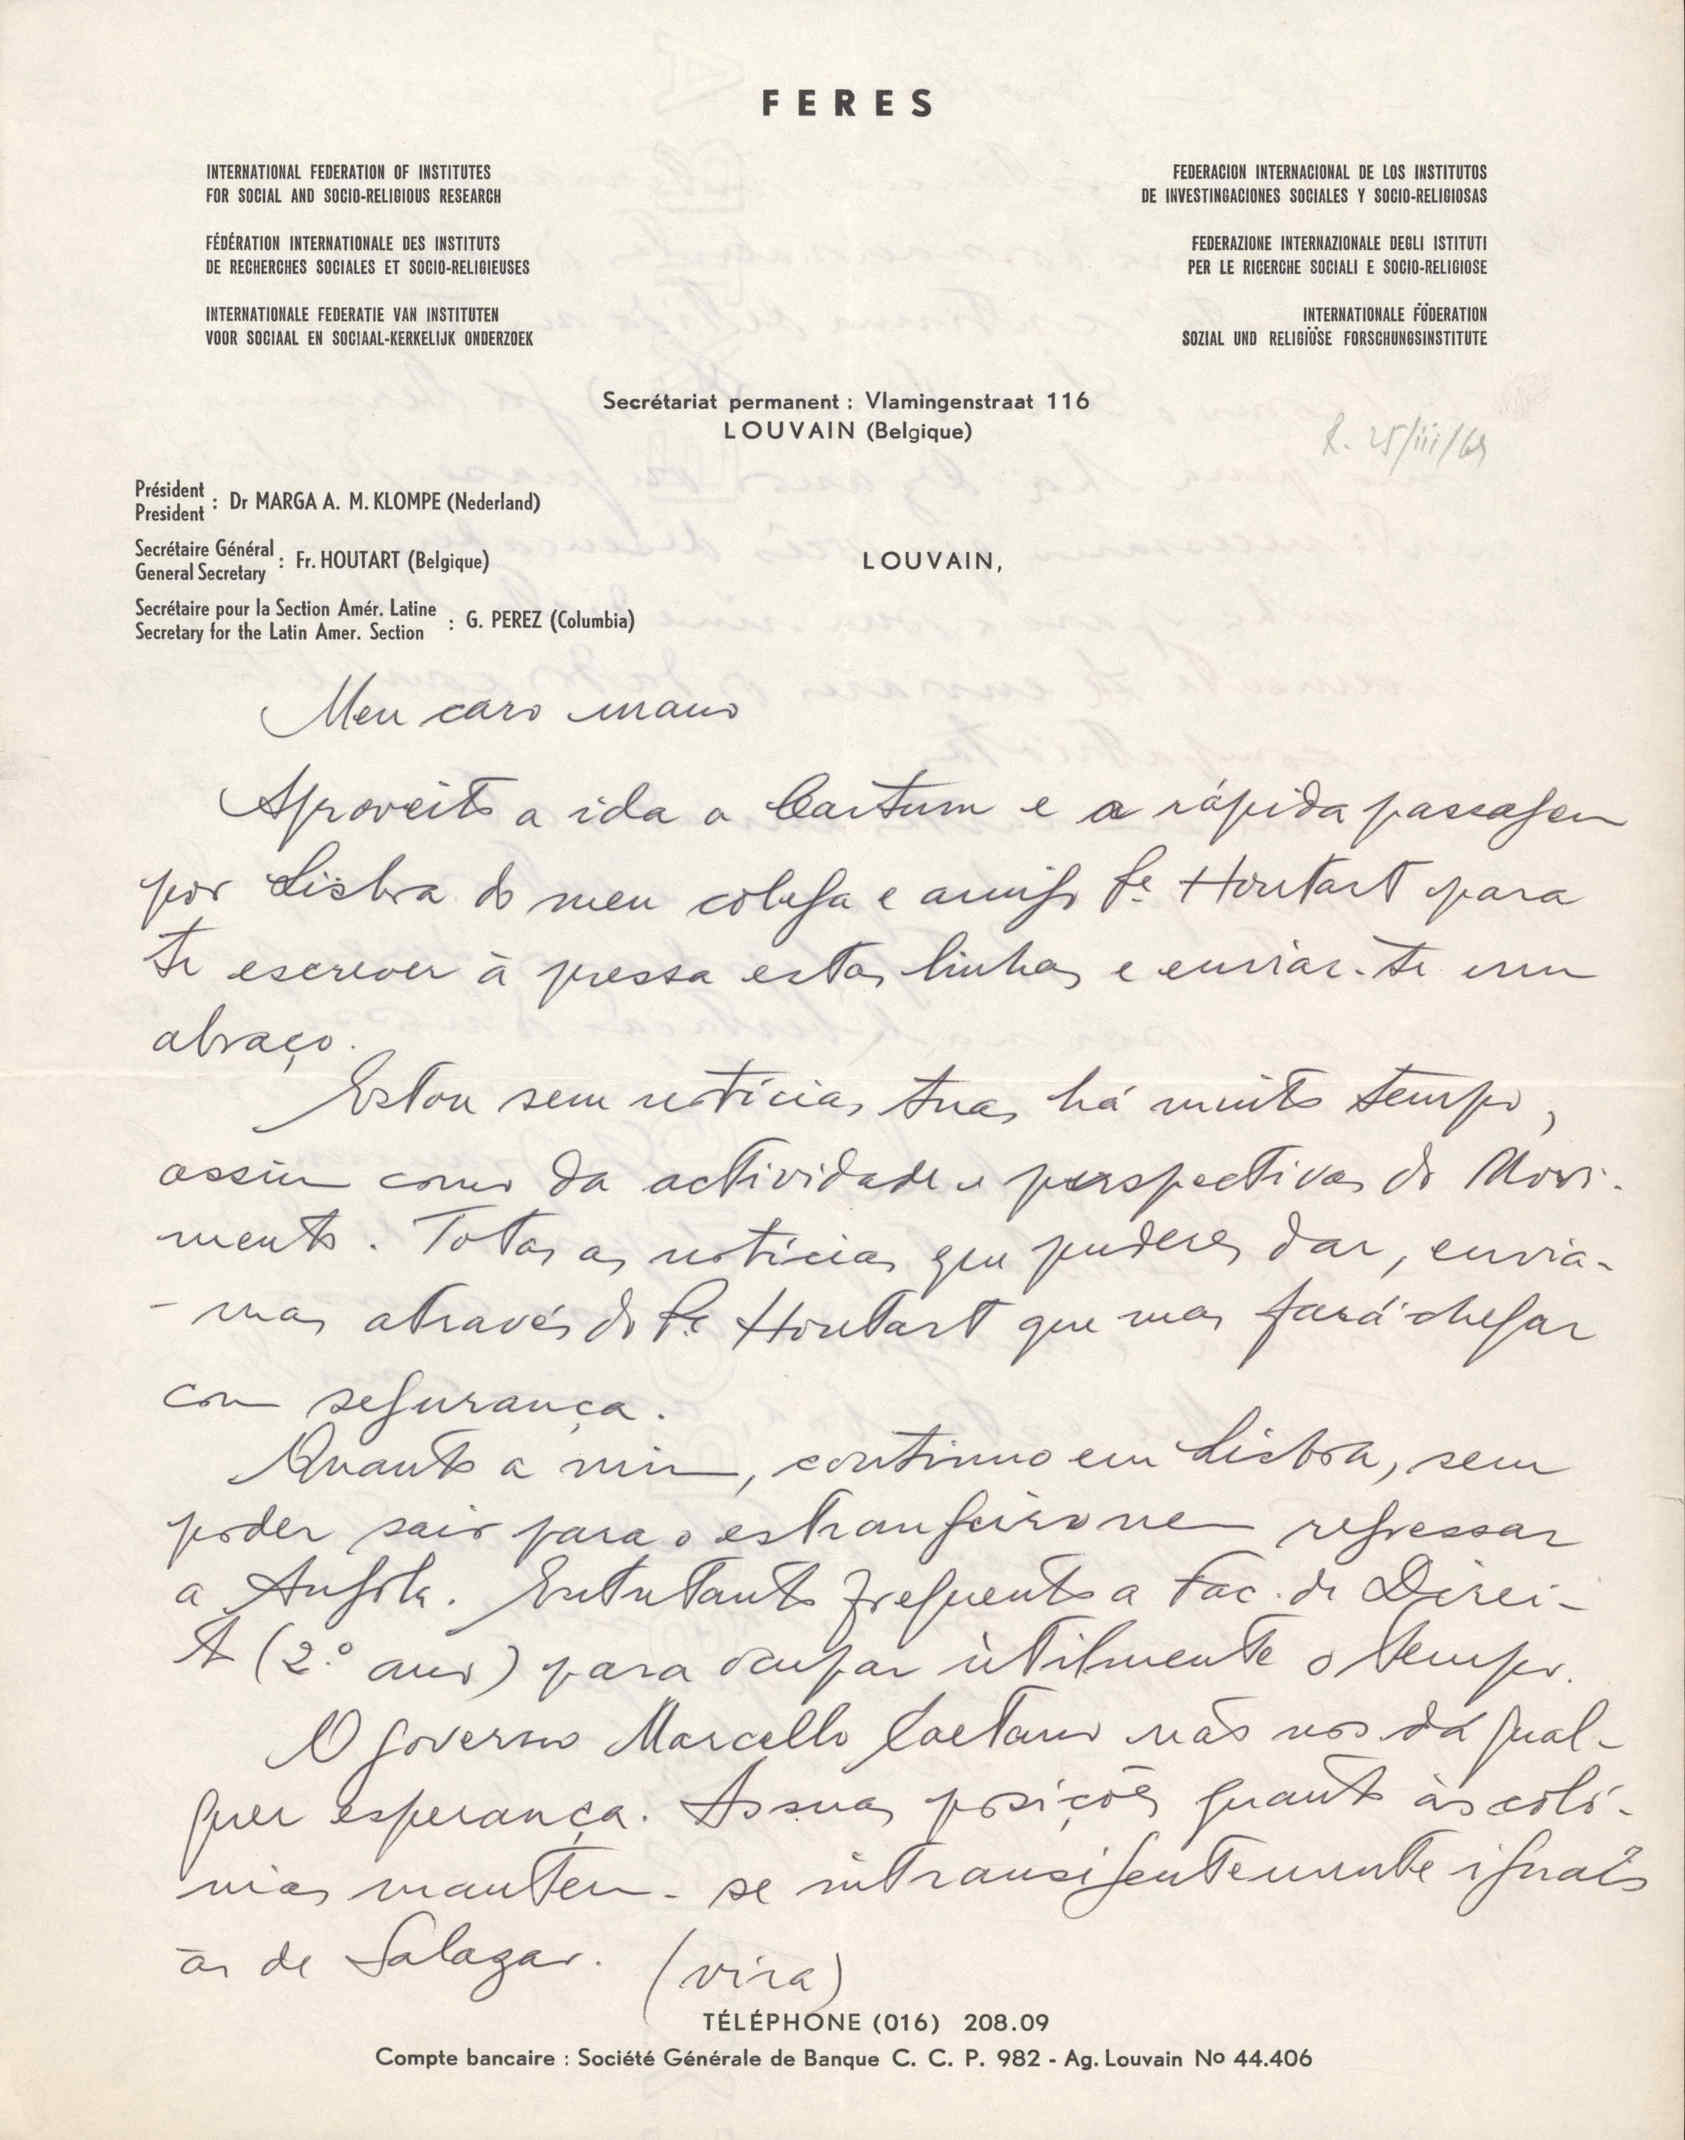 FERES
INTERNATIONAL FEDERATION OF INSTITUTES
FOR SOCIAL AND SOCIO-RELIGIOUS RESEARCH
FÉDÉRATION INTERNATIONALE DES INSTITUTS
DE RECHERCHES SOCIALES ET SOCIO-RELIGIEUSES
INTERNATIONALE FEDERATIE VAN INSTITUTEN
VOOR SOCIAAL EN SOCIAAL-KERKELIJK ONDERZOEK
FEDERACION INTERNACIONAL DE LOS INSTITUTOS
DE INVESTINGACIONES SOCIALES Y SOCIO-RELIGIOSAS
FEDERAZIONE INTERNAZIONALE DEGLI ISTITUTI
PER LE RICERCHE SOCIALI E SOCIO-RELIGIOSE
INTERNATIONALE FÖDERATION
SOZIAL UND RELIGIÖSE FORSCHUNGSINSTITUTE
Secrétariat permanent : Vlamingenstraat 116
LOUVAIN (Belgique)
R. 25/iii/69
Président
President : Dr MARGA A. M. KLOMPE (Nederland)
Secrétaire Général
General Secretary : Fr. HOUTART (Belgique)
LOUVAIN,
Secrétaire pour la Section Amér. Latine
Secretary for the Latin Amer. Section : G. PEREZ (Columbia)
Meu caro mano
Aproveito a ida a Cartum e a rápida passagem
por Lisboa do meu colega e amigo Pe. Houtart para
te escrever à pressa estas linhas e enviar-te um
abraço.
Estou sem notícias tuas há muito tempo,
assim como da actividade e perspectivas do Movi-
mento. Totas as notícias que puderes dar, envia-
-mas através do Pe Houtart que mas fará chegar
com segurança.
Quanto a mim, continuo em Lisboa, sem
poder sair para o estrangeiro nem regressar
a Angola. Entretanto frequento a Fac. de Direi-
to (2.º ano) para ocupar ùtilmente o tempo.
O governo Marcello Caetano não nos dá qual-
quer esperança. As suas posições quanto às coló-
nias mantem-se intransigentemente iguais
às de Salazar. (vira)
TÉLÉPHONE (016) 208.09
Compte bancaire : Société Générale de Banque C. C. P. 982 - Ag. Louvain No 44.406